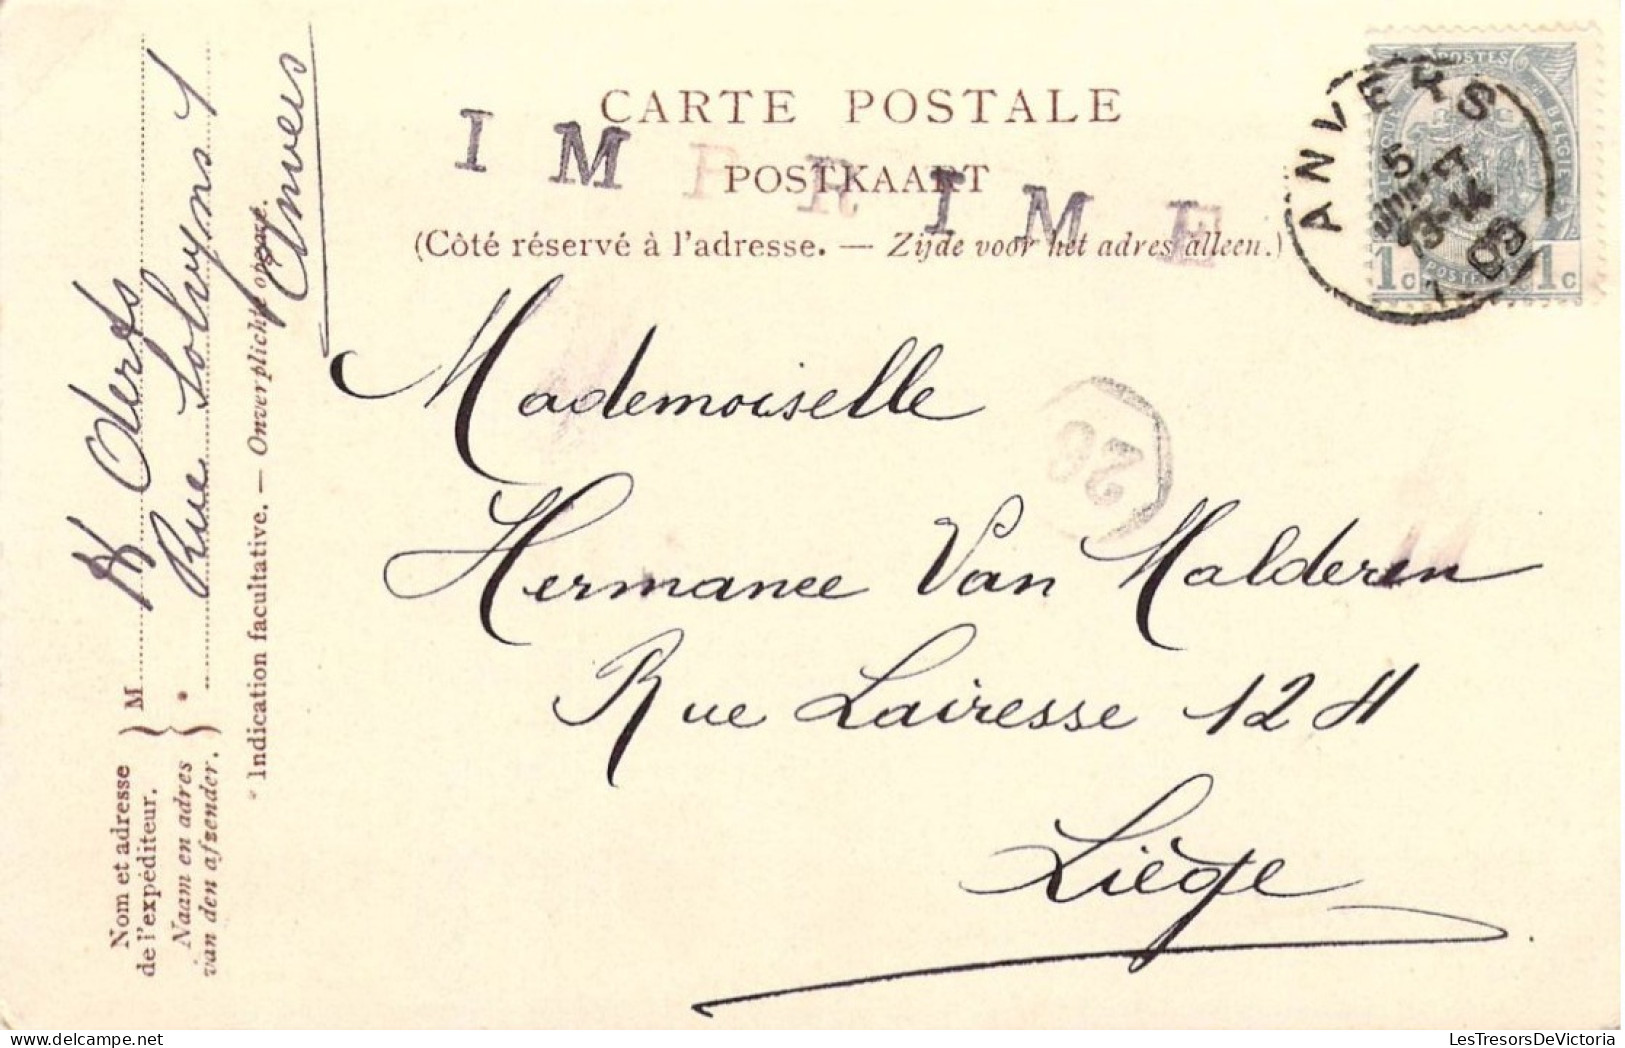 CARTE POSTALE
IMPRIME
POSTKAART
(Côté réservé à l'adresse. — Zijde voor het adres alleen.)
POSTES
BELGIE
1c POSTERIJEN 1c
ANVERS
5
13-14
09
Mademoiselle
26
Hermance Van Malderen
Rue Lairesse 124
Liège
Nom et adresse
de l'expéditeur.
Naam en adres
van den afzender.
M H Oerts
Rue Solvyns 1
Anvers
* Indication facultative. — Onverplichte opgave.
LesTresorsDeVictoria